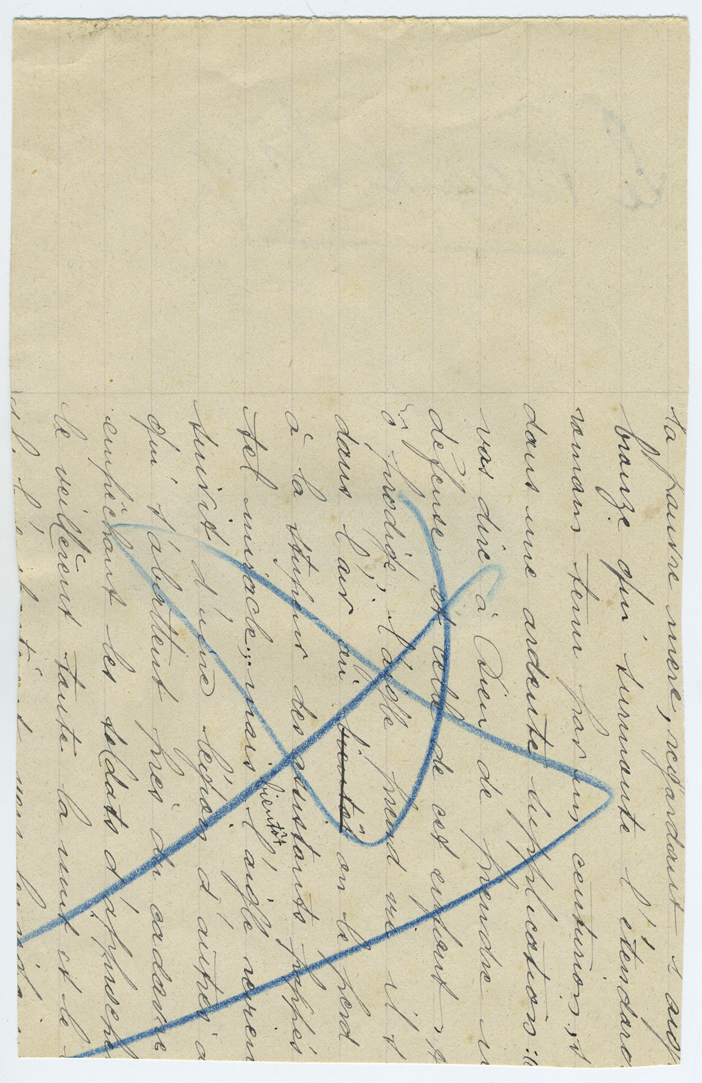 la pauvre mère, regardant l'aig
bronze qui surmonte l'étendard
romain tenu par un centurion, s
dans une ardente supplication :
vas dire à Dieu de prendre
défense et celle de cet enfant
ô prodige, l'aigle prend vie il
dans l'air où bientôt on le perd
à la stupeur des assistants frappés
tel miracle.. mais bientôt l'aigle revien
suivit d'une légion d'autres a
qui s'abattent près du cadavre
empêchant les soldats d'approche
le veillèrent toute la nuit et le